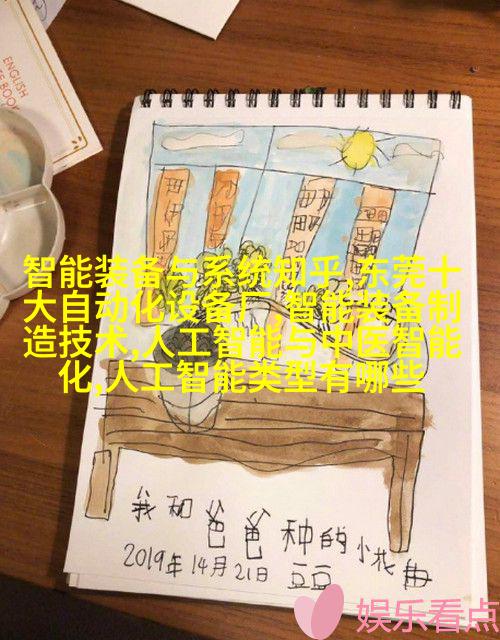 ENGLISH
E BOOK
智能装备与系统知乎,东莞十
大自动化设备厂 智能装备制
造技术,人工智能与中医智能
化,人工智能类型有哪些
我和爸爸种的小
2019年14月21日 豆豆
娱乐看点